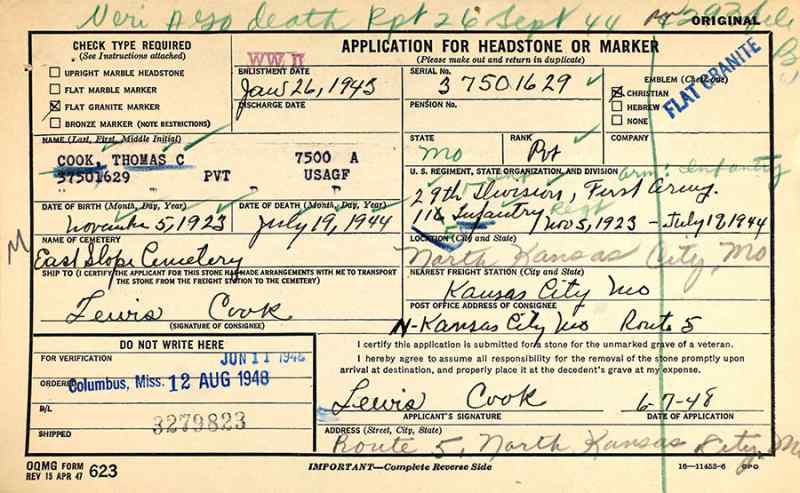 Veri AGO death Rpt 26 Sept 44
ORIGINAL
CHECK TYPE REQUIRED
(See Instructions attached)
UPRIGHT MARBLE HEADSTONE
FLAT MARBLE MARKER
FLAT GRANITE MARKER
BRONZE MARKER (NOTE RESTRICTIONS)
APPLICATION FOR HEADSTONE OR MARKER
(Please make out and return in duplicate)
WW II
ENLISTMENT DATE
Jan 26, 1943
DISCHARGE DATE
SERIAL No.
37501629
PENSION No.
EMBLEM (Check one)
CHRISTIAN
HEBREW
NONE
FLAT GRANITE
STATE
Mo
RANK
Pvt
COMPANY
NAME (Last, First, Middle Initial)
COOK, THOMAS C 7500 A
37501629 PVT USAGF
" "
U. S. REGIMENT, STATE ORGANIZATION, AND DIVISION
arm: Infantry
29th Division, First Army.
116 Infantry Regt Nov 5, 1923 - July 19, 1944
DATE OF BIRTH (Month, Day, Year)
November 5, 1923
DATE OF DEATH (Month, Day, Year)
July 19, 1944
M
NAME OF CEMETERY
East Slope Cemetery
LOCATION (City and State)
North Kansas City, Mo
SHIP TO (I CERTIFY THE APPLICANT FOR THIS STONE HAS MADE ARRANGEMENTS WITH ME TO TRANSPORT
THE STONE FROM THE FREIGHT STATION TO THE CEMETERY)
Lewis Cook
(SIGNATURE OF CONSIGNEE)
NEAREST FREIGHT STATION (City and State)
Kansas City Mo
POST OFFICE ADDRESS OF CONSIGNEE
N-Kansas City Mo Route 5
DO NOT WRITE HERE
FOR VERIFICATION
JUN 11 1948
ORDERED
Columbus, Miss. 12 AUG 1948
B/L
3279823
SHIPPED
I certify this application is submitted for a stone for the unmarked grave of a veteran.
I hereby agree to assume all responsibility for the removal of the stone promptly upon
arrival at destination, and properly place it at the decedent's grave at my expense.
Lewis Cook 6-7-48
APPLICANT'S SIGNATURE DATE OF APPLICATION
ADDRESS (Street, City, State)
Route 5, North Kansas City, Mo
OQMG FORM
REV 15 APR 47 623
IMPORTANT—Complete Reverse Side
16—11453-6 GPO